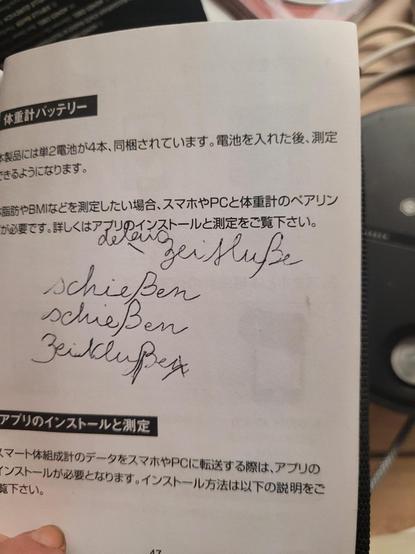 体重計バッテリー
本製品には単2電池が4本、同梱されています。電池を入れた後、測定
できるようになります。
体脂肪やBMIなどを測定したい場合、スマホやPCと体重計のペアリン
グが必要です。詳しくはアプリのインストールと測定をご覧下さい。
schießen
schießen
アプリのインストールと測定
スマート体組成計のデータをスマホやPCに転送する際は、アプリの
インストールが必要となります。インストール方法は以下の説明をご
覧下さい。
47